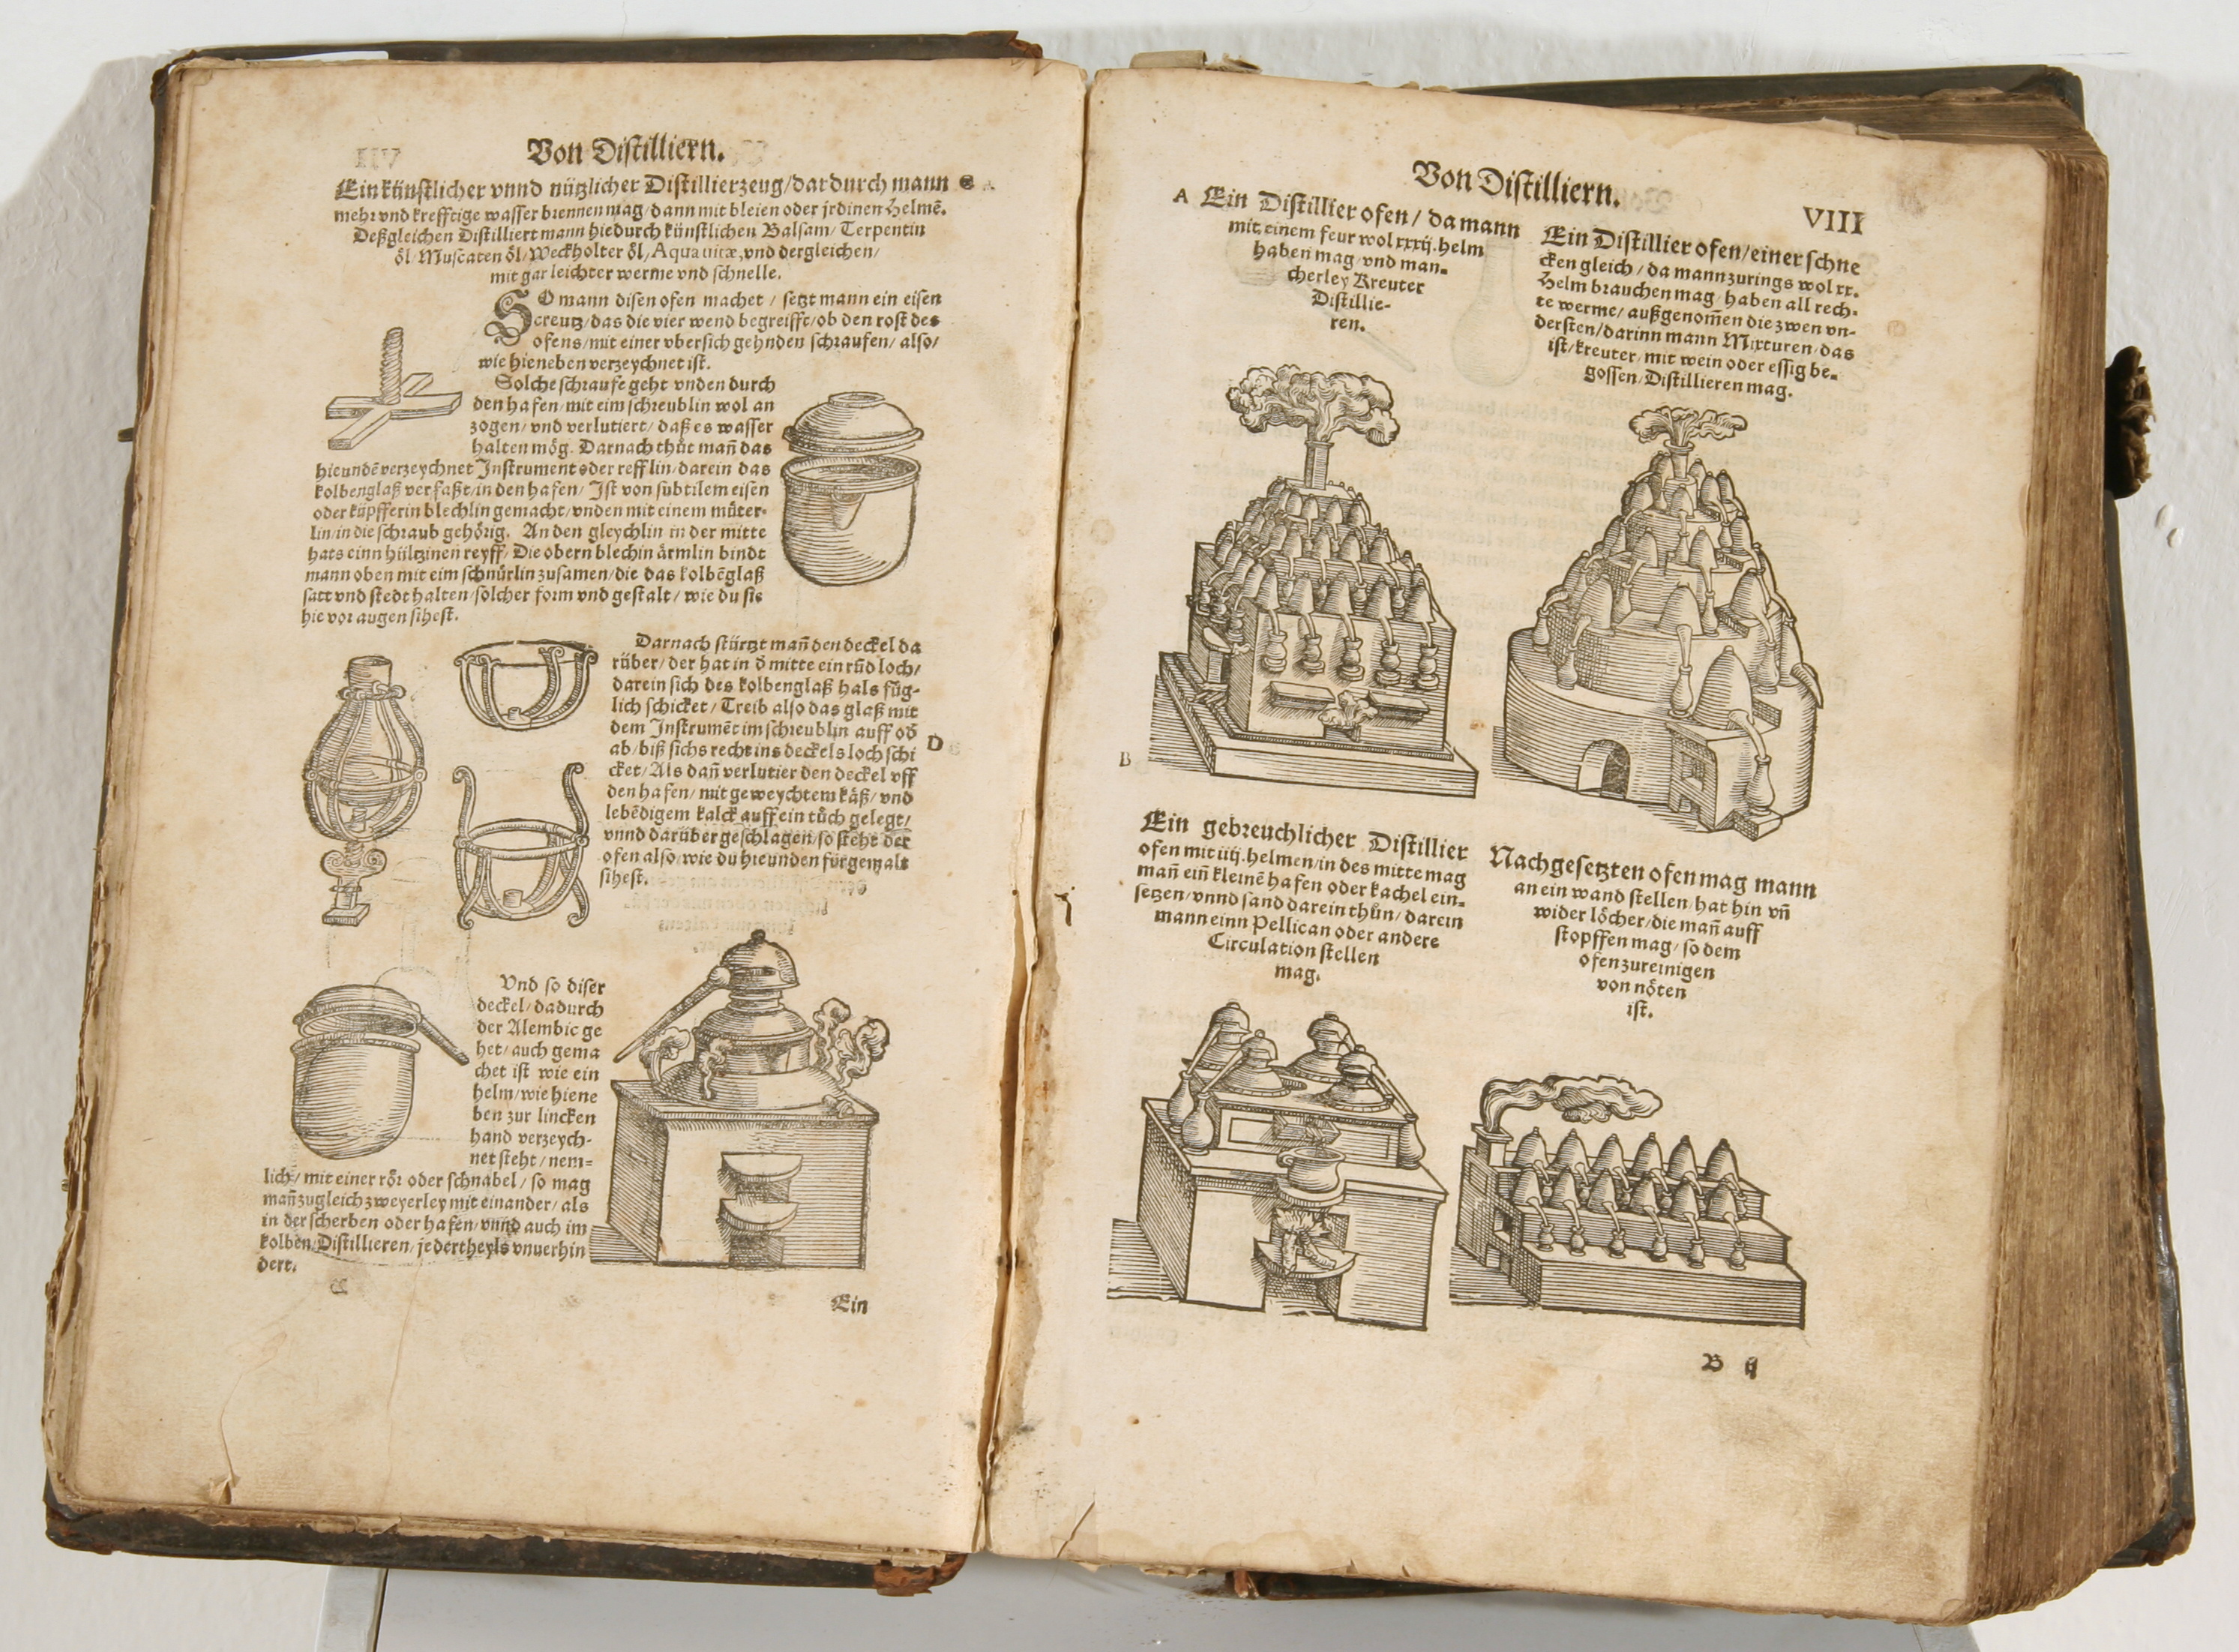 Von Distilliern.
Ein künstlicher vnnd nützlicher Distillierzeug/dardurch mann
mehr vnd krefftige wasser brennen mag/dann mit bleien oder jrdinen Helmē.
Deßgleichen Distilliert mann hiedurch künstlichen Balsam/Terpentin
öl/Muscaten öl/Weckholter öl/Aqua uitæ,vnd dergleichen/
mit gar leichter werme vnd schnelle.
SO mann disen ofen machet / setzt mann ein eisen
creutz/das die vier wend begreifft/ob den rost des
ofens/mit einer vbersich gehnden schraufen/ also/
wie hieneben verzeychnet ist.
Solche schraufe geht vnden durch
den hafen/mit eim schreublin wol an
zogen/vnd verlutiert/daß es wasser
halten mög. Darnach thůt mañ das
hieundē verzeychnet Instrument oder refflin/darein das
kolbenglaß verfaßt/in den hafen/ Ist von subtilem eisen
oder küpfferin blechlin gemacht/vnden mit einem můter-
lin/in die schraub gehörig. An den gleychlin in der mitte
hats einn hültzinen reyff/Die obern blechin ärmlin bindt
mann oben mit eim schnürlin zusamen/die das kolbēglaß
satt vnd stedt halten/solcher form vnd gestalt/wie du sie
hie vor augen sihest.
Darnach stürtzt mañ den deckel da
rüber/der hat in ð mitte ein rūd loch/
darein sich des kolbenglaß hals füg-
lich schicket/Treib also das glaß mit
dem Instrumēt im schreublin auff oð
ab/biß sichs recht ins deckels loch schi
cket/Als dañ verlutier den deckel vff
den hafen/mit geweychtem käß/vnd
lebēdigem kalck auff ein tůch gelegt/
vnnd darüber geschlagen/so steht der
ofen also/wie du hieunden fürgemalt
sihest.
D
Vnd so diser
deckel/dadurch
der Alembic ge
het/auch gema
chet ist wie ein
helm/wie hiene
ben zur lincken
hand verzeych-
net steht/nem=
lich/mit einer rör oder schnabel/so mag
mañ zugleich zweyerley mit einander/als
in der scherben oder hafen/vnnd auch im
kolben/Distillieren/jedertheyls vnuerhin
dert.
Ein
Von Distilliern.
VIII
A
Ein Distillier ofen/ da mann
mit einem feur wol xxxij.helm
haben mag/vnd man-
cherley Kreuter
Distillie-
ren.
Ein Distillier ofen/einer schne
cken gleich/da mann zurings wol xx.
Helm brauchen mag/haben all rech-
te werme/außgenom̃en die zwen vn-
dersten/darinn mann Mixturen/das
ist/kreuter/mit wein oder essig be-
gossen/Distillieren mag.
B
Ein gebreuchlicher Distillier
ofen mit iiij.helmen/in des mitte mag
mañ eiñ kleinē hafen oder kachel ein-
setzen/vnnd sand darein thůn/darein
mann einn Pellican oder andere
Circulation stellen
mag.
Nachgesetzten ofen mag mann
an ein wand stellen/hat hin vñ
wider löcher/die mañ auff
stopffen mag/so dem
ofen zureinigen
von nöten
ist.
B ij